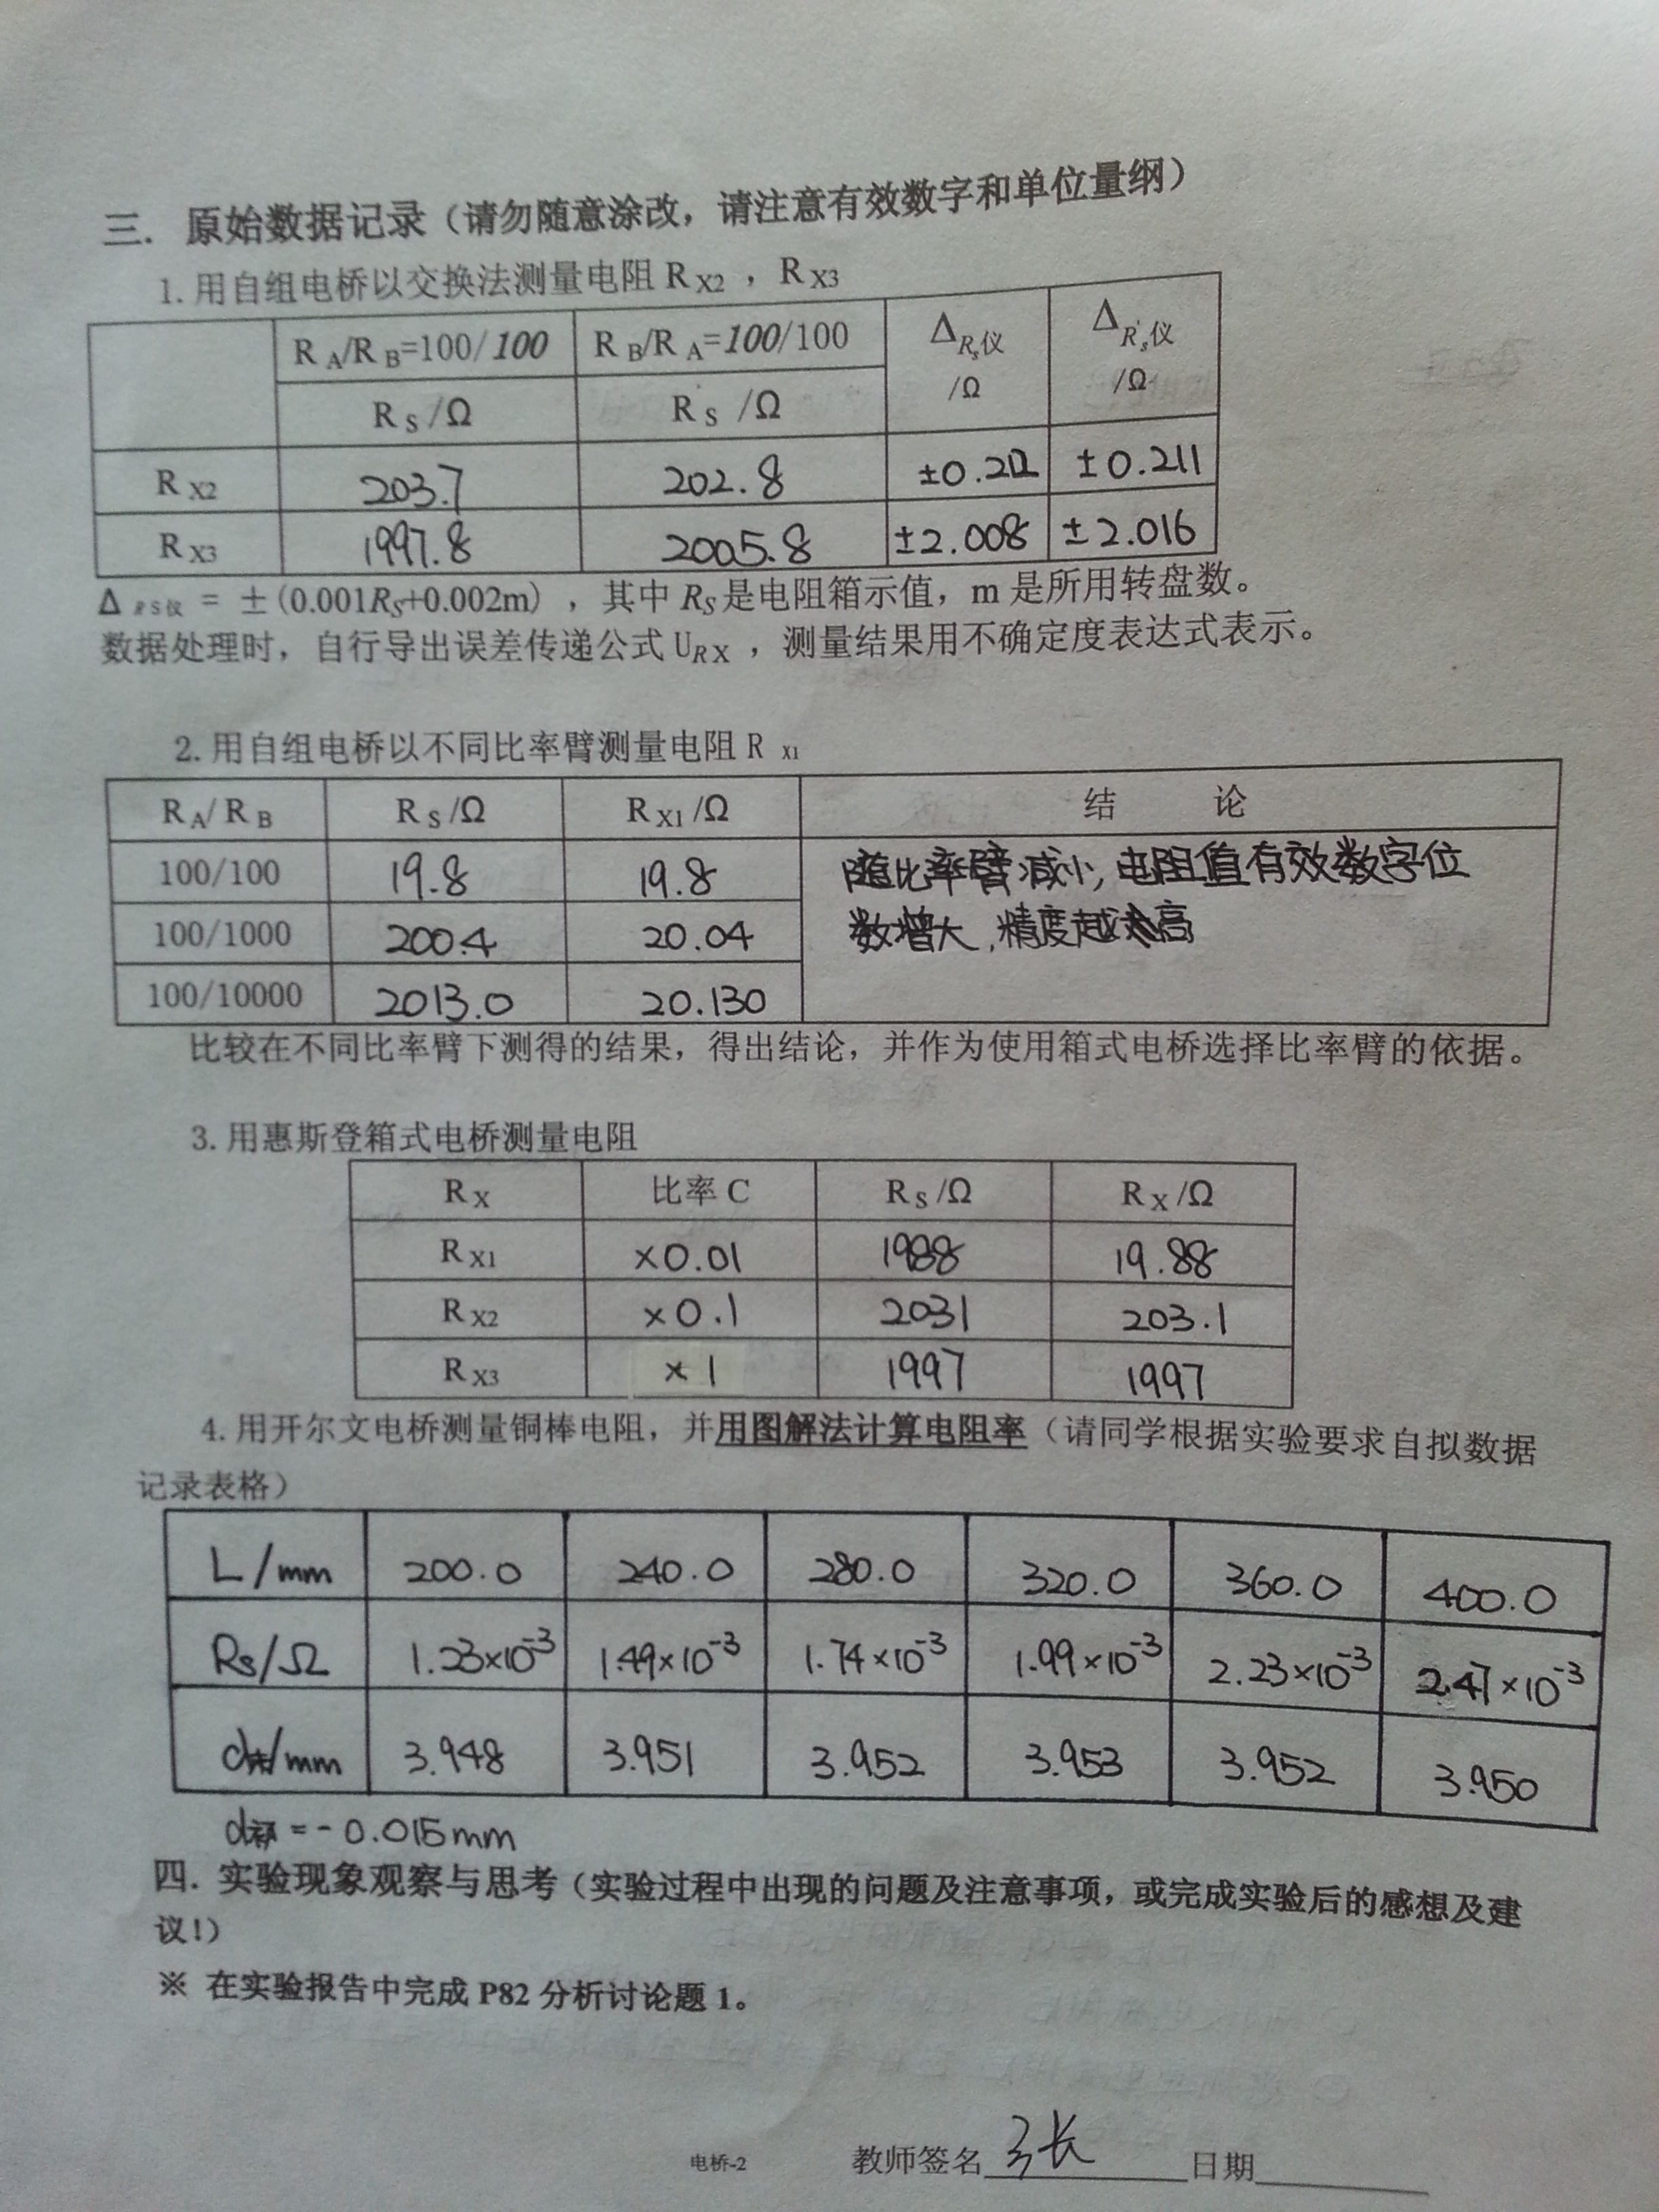 三. 原始数据记录（请勿随意涂改，请注意有效数字和单位量纲）
1.用自组电桥以交换法测量电阻 R X2 ，R X3
R A/R B=100/100 R B/R A=100/100 Δ Rs仪 /Ω Δ R's仪 /Ω
R S /Ω R S /Ω
R X2 203.7 202.8 ±0.212 ±0.211
R X3 1997.8 2005.8 ±2.008 ±2.016
Δ RS仪 = ±(0.001RS+0.002m) ，其中 RS是电阻箱示值，m 是所用转盘数。
数据处理时，自行导出误差传递公式 URX ，测量结果用不确定度表达式表示。
2.用自组电桥以不同比率臂测量电阻 R X1
R A/ R B R S /Ω R X1 /Ω 结 论
100/100 19.8 19.8 随比率臂减小, 电阻值有效数字位
100/1000 200.4 20.04 数增大,精度越高
100/10000 2013.0 20.130
比较在不同比率臂下测得的结果，得出结论，并作为使用箱式电桥选择比率臂的依据。
3.用惠斯登箱式电桥测量电阻
R X 比率 C R S /Ω R X /Ω
R X1 ×0.01 1988 19.88
R X2 ×0.1 2031 203.1
R X3 ×1 1997 1997
4.用开尔文电桥测量铜棒电阻，并用图解法计算电阻率（请同学根据实验要求自拟数据
记录表格）
L/mm 200.0 240.0 280.0 320.0 360.0 400.0
Rs/Ω 1.23×10⁻³ 1.49×10⁻³ 1.74×10⁻³ 1.99×10⁻³ 2.23×10⁻³ 2.47×10⁻³
d末/mm 3.948 3.951 3.952 3.953 3.952 3.950
d初=-0.015mm
四. 实验现象观察与思考（实验过程中出现的问题及注意事项，或完成实验后的感想及建
议！）
※ 在实验报告中完成 P82 分析讨论题 1。
电桥-2 教师签名 张 日期